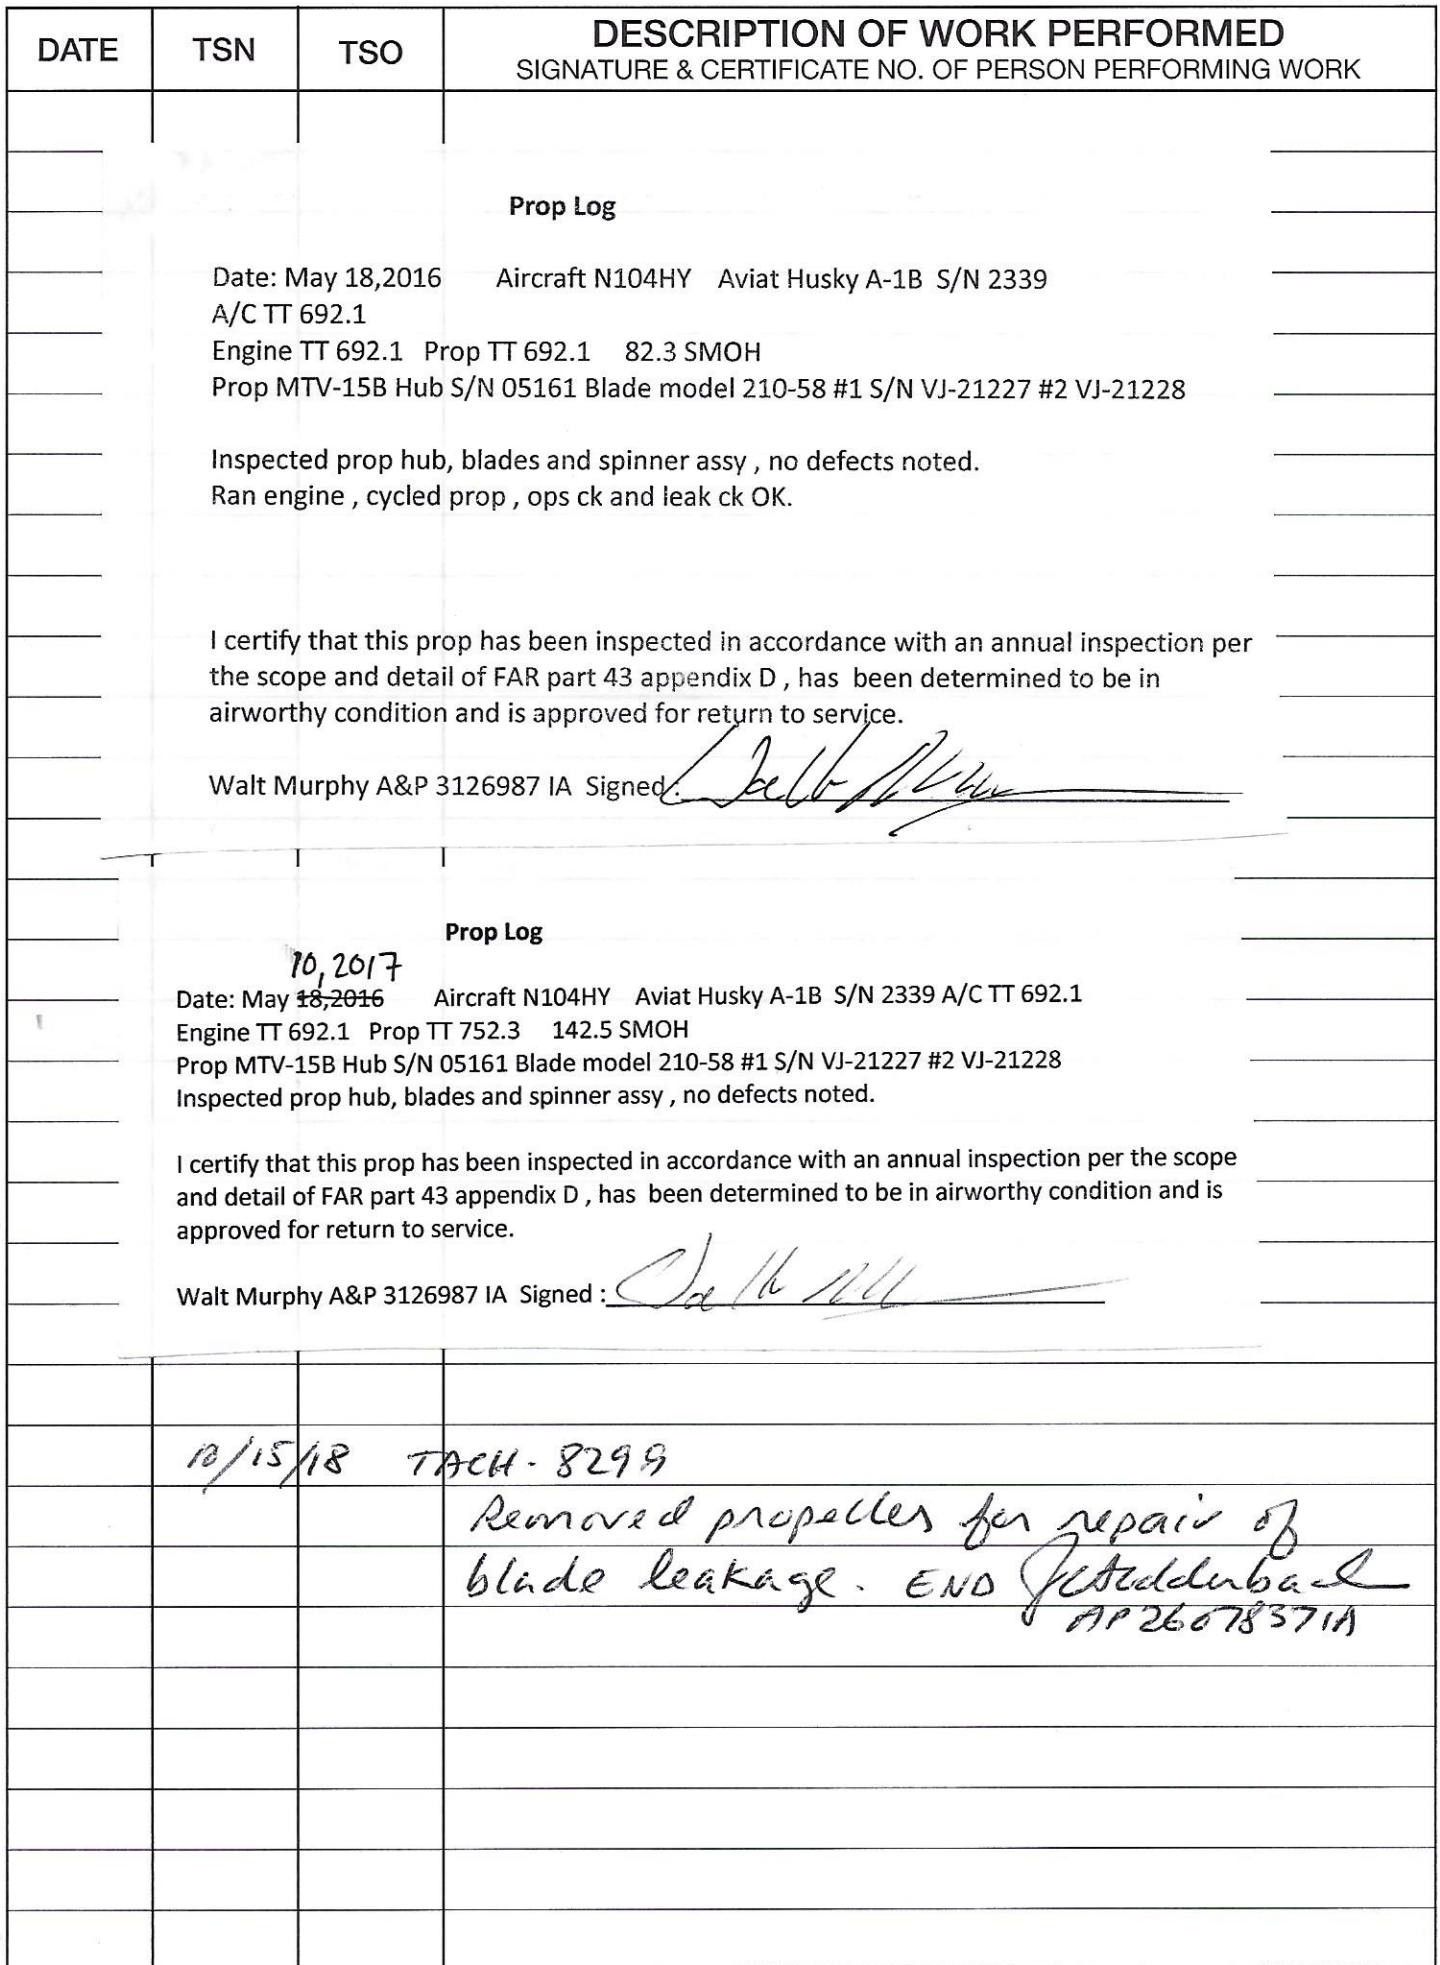 DATE TSN TSO DESCRIPTION OF WORK PERFORMED
SIGNATURE & CERTIFICATE NO. OF PERSON PERFORMING WORK
Prop Log
Date: May 18,2016 Aircraft N104HY Aviat Husky A-1B S/N 2339
A/C TT 692.1
Engine TT 692.1 Prop TT 692.1 82.3 SMOH
Prop MTV-15B Hub S/N 05161 Blade model 210-58 #1 S/N VJ-21227 #2 VJ-21228
Inspected prop hub, blades and spinner assy , no defects noted.
Ran engine , cycled prop , ops ck and leak ck OK.
I certify that this prop has been inspected in accordance with an annual inspection per
the scope and detail of FAR part 43 appendix D , has been determined to be in
airworthy condition and is approved for return to service.
Walt Murphy A&P 3126987 IA Signed :
Prop Log
10, 2017
Date: May 18,2016 Aircraft N104HY Aviat Husky A-1B S/N 2339 A/C TT 692.1
Engine TT 692.1 Prop TT 752.3 142.5 SMOH
Prop MTV-15B Hub S/N 05161 Blade model 210-58 #1 S/N VJ-21227 #2 VJ-21228
Inspected prop hub, blades and spinner assy , no defects noted.
I certify that this prop has been inspected in accordance with an annual inspection per the scope
and detail of FAR part 43 appendix D , has been determined to be in airworthy condition and is
approved for return to service.
Walt Murphy A&P 3126987 IA Signed :
10/15/18 TACH - 8299
Removed propeller for repair of
blade leakage. END
AP 2607837IA